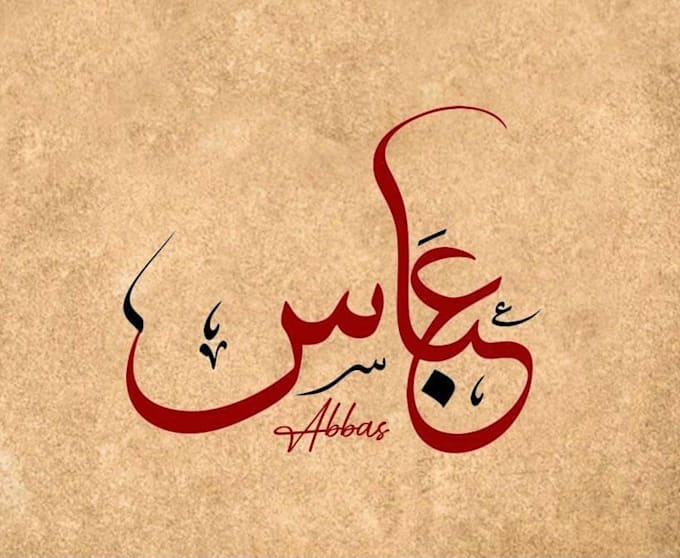 عَباس
Abbas